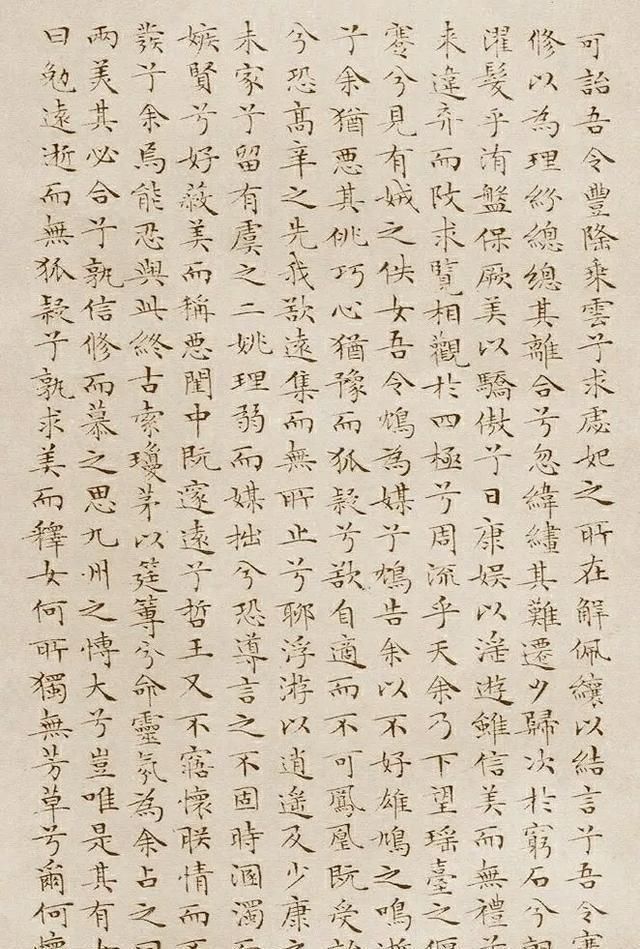 可詒吾令豐隆乘雲兮求虙妃之所在解佩纕以結言兮吾令
修以為理紛總總其離合兮忽緯繣其難遷夕歸次於窮石兮
濯髮乎洧盤保厥美以驕傲兮日康娛以淫遊雖信美而無禮
来違弃而改求覽相觀於四極兮周流乎天余乃下望瑤臺之
蹇兮見有娀之佚女吾令鴆為媒兮鴆告余以不好雄鳩之鳴
兮余猶惡其佻巧心猶豫而狐疑兮欲自適而不可鳳凰既受
兮恐高辛之先我欲遠集而無所止兮聊浮游以逍遙及少康
未家兮留有虞之二姚理弱而媒拙兮恐導言之不固時溷濁
嫉賢兮好蔽美而稱惡閨中既邃遠兮哲王又不寤懷朕情而
發兮余焉能忍與此終古索瓊茅以筳篿兮命靈氛為余占之
兩美其必合兮孰信修而慕之思九州之博大兮豈唯是其有
曰勉遠逝而無狐疑兮孰求美而釋女何所獨無芳草兮爾何